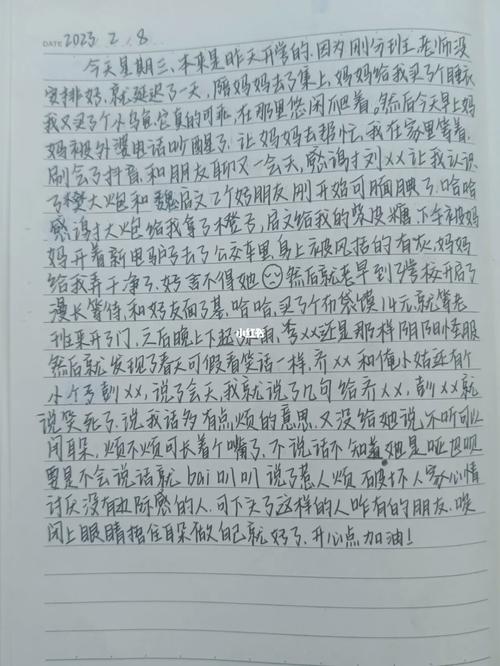 DATE 2023 2 8
今天星期三、本来是昨天开学的、因为刚分班、老师没
安排好、就延迟了一天，陪妈妈去了集上，妈妈给我买了个睡衣
我又买了个小乌龟、它真的可乖、在那里悠闲爬着。然后今天早上妈
妈被外婆电话吵醒了、让妈妈去帮忙、我在家里等着、
刷会了抖音、和朋友聊又一会天、感谢对刘xx让我认识
了樊大炮和魏启文2个好朋友、刚开始可腼腆了、哈哈
感谢对大炮给我拿了橙子、启文给我的柴皮糖、下午被妈
妈开着新电驴去了公交车里、身上被风括的有灰、妈妈
给我弄干净了、好舍不得她 然后就老早到了学校开启了
漫长等待、和好友面了基、哈哈、买了个布袋馍14元、就等老
班来开了门、之后晚上下起小雨、李xx还是那样阴阳怪服
然后就发现了春天可假看笑话一样、乔xx和俺小姑还有个
小个子彭xx，说了会天、我就说了几句给乔xx、彭xx就
说笑死了、说我话多有点烦的意思、又没给她说、不听可以
闭耳朵、烦不烦可长着个嘴了、不说话不知道她是哑巴呗
要是不会说话就bai叭叭说了惹人烦 破坏人家心情
讨厌没有边际感的人、可下头了这样的人咋有的朋友、唉
闭上眼睛捂住耳朵做自己就好了、开心点加油！
小红书